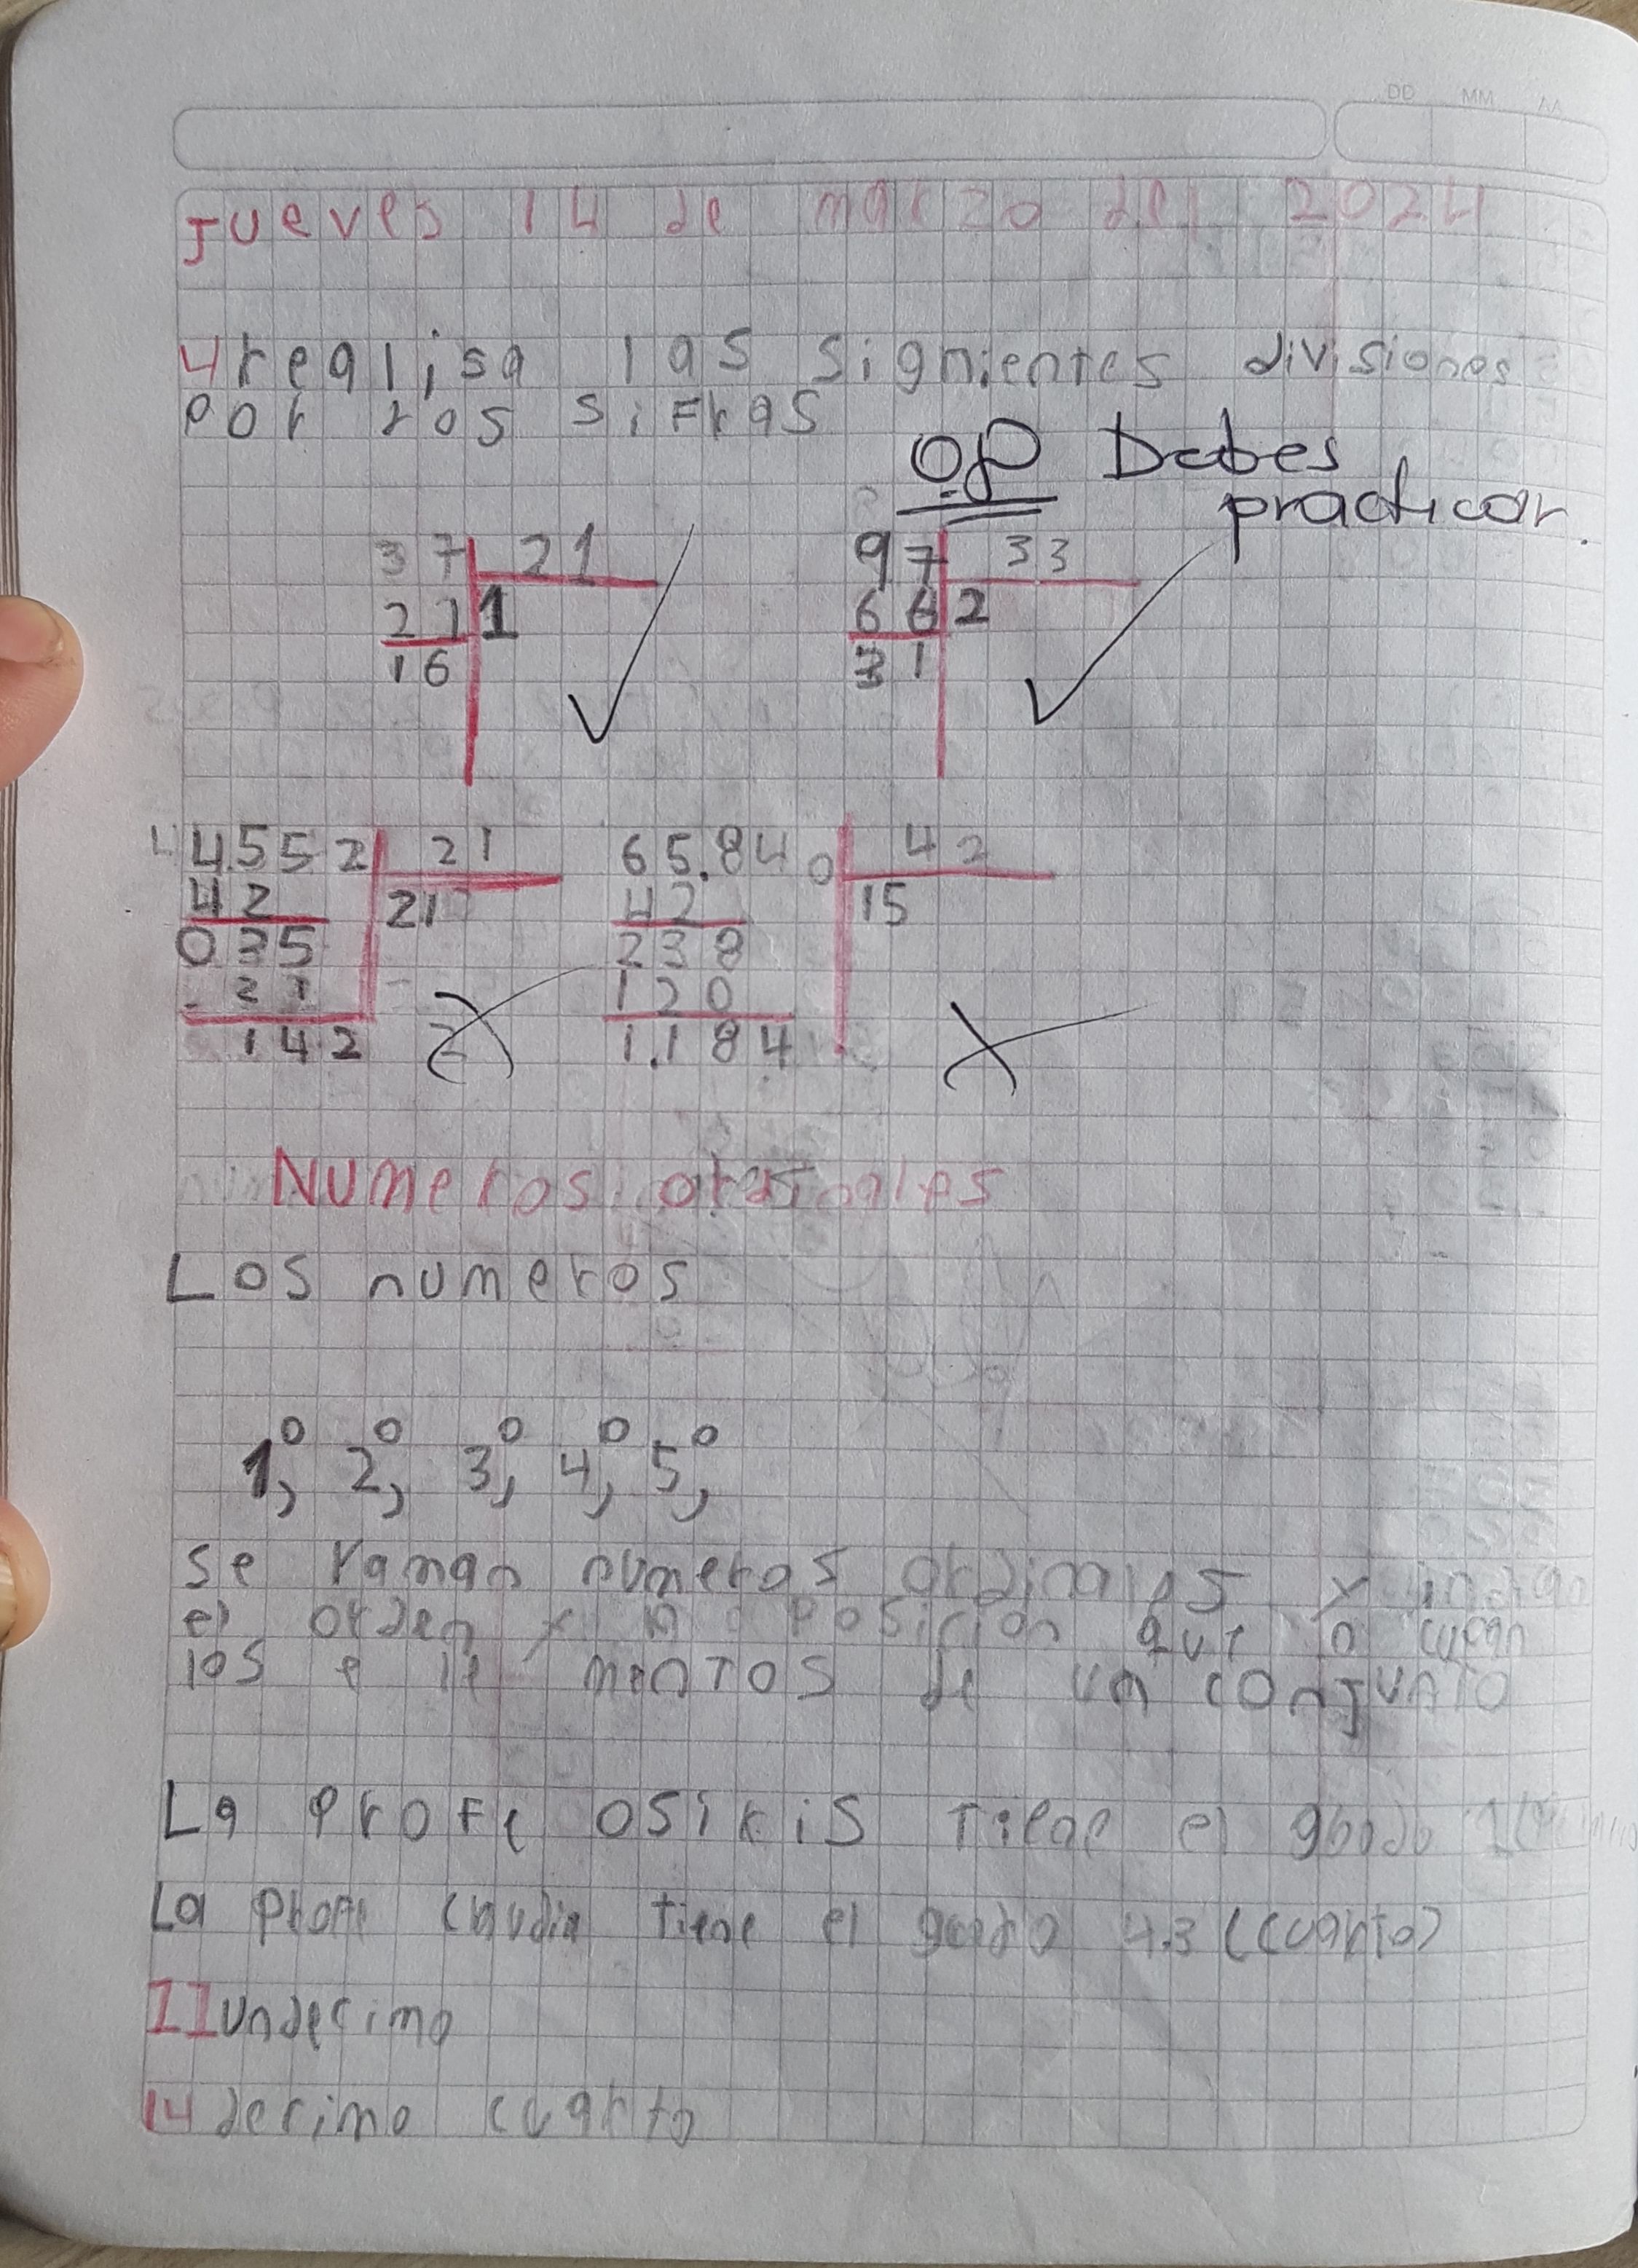 DD MM AA
Jueves 14 de marzo del 2024
4 realisa las siguientes divisiones
por dos sifras
Debes
practicar
37 21
21 1
16
97 33
66 2
31
4.552 21
42 21
035
- 21
142
65.840 42
42 15
238
120
1.184
Numeros ordinales
Los numeros
1°, 2°, 3°, 4°, 5°,
se yaman numeros ordinales y indican
el orden y la posicion que o cupan
los e le mentos de un conjunto
La profe osiris tiene el grado
La profe claudia tiene el grado 4.3 (cuarto)
11 undecimo
14 decimo cuarto